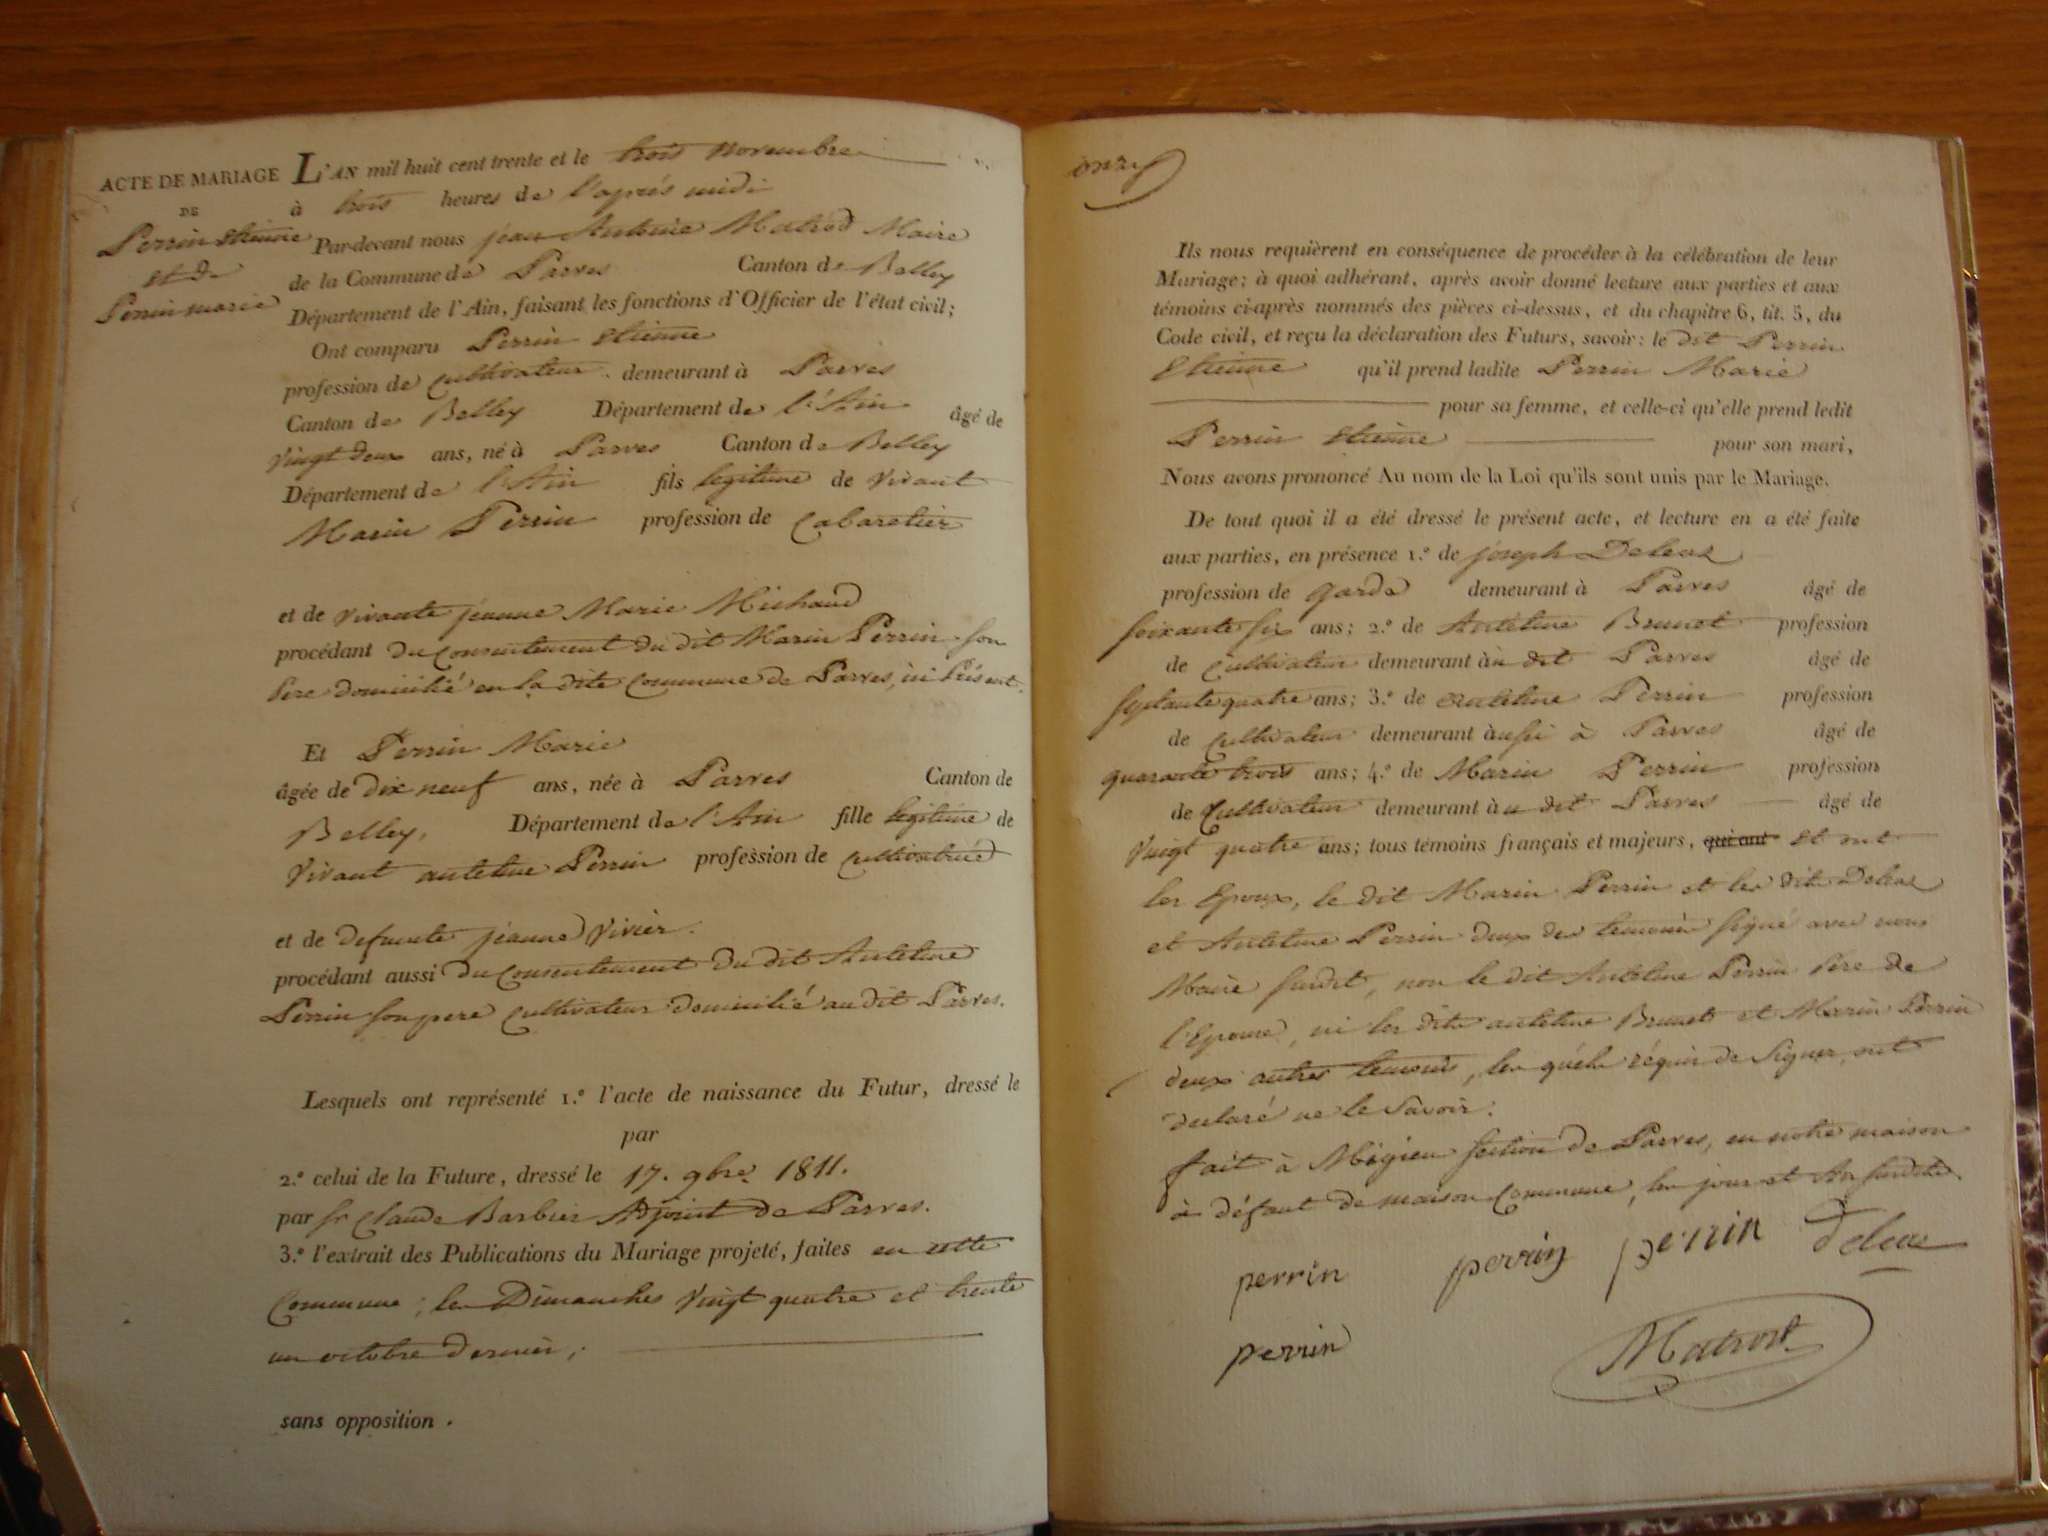 ACTE DE MARIAGE
DE
Perrin Etienne
et de
Perrin marie
L'AN mil huit cent trente et le trois novembre
à trois heures de l'après midi
Par-devant nous jean Antoine Matrod Maire
de la Commune de Parves Canton de Belley
Département de l'Ain, faisant les fonctions d'Officier de l'état civil;
Ont comparu Perrin Etienne
profession de cultivateur demeurant à Parves
Canton de Belley Département de l'Ain âgé de
vingt deux ans, né à Parves Canton de Belley
Département de l'Ain fils legitime de vivant
Marin Perrin profession de Cabaretier
et de vivante jeanne Marie Michaud
procédant du consentement du dit Marin Perrin son
Pere domicilié en la dite Commune de Parves, ici Présent.
Et Perrin Marie
âgée de dix neuf ans, née à Parves Canton de
Belley, Département de l'Ain fille legitime de
vivant antelme Perrin profession de
et de defunte jeanne Vivier.
procédant aussi du consentement du dit Antelme
Perrin son pere cultivateur domicilié au dit Parves.
Lesquels ont représenté 1.º l'acte de naissance du Futur, dressé le
par
2.º celui de la Future, dressé le 17. 9bre. 1811.
par Sr Claude Barbier Adjoint de Parves.
3.º l'extrait des Publications du Mariage projeté, faites en cette
Commune; les Dimanches vingt quatre et trente
un octobre dernier,
sans opposition.
onze
Ils nous requièrent en conséquence de procéder à la célébration de leur
Mariage; à quoi adhérant, après avoir donné lecture aux parties et aux
témoins ci-après nommés des pièces ci-dessus, et du chapitre 6, tit. 5, du
Code civil, et reçu la déclaration des Futurs, savoir: le dit Perrin
Etienne qu'il prend ladite Perrin Marie
pour sa femme, et celle-ci qu'elle prend ledit
Perrin Etienne pour son mari,
Nous avons prononcé Au nom de la Loi qu'ils sont unis par le Mariage.
De tout quoi il a été dressé le présent acte, et lecture en a été faite
aux parties, en présence 1.º de joseph Deleaz
profession de garde demeurant à Parves âgé de
soixante six ans; 2.º de Antelme Brunet profession
de Cultivateur demeurant àu dit Parves âgé de
septante quatre ans; 3.º de Antelme Perrin profession
de Cultivateur demeurant àussi à Parves âgé de
quarante trois ans; 4.º de Marin Perrin profession
de Cultivateur demeurant àu dit Parves âgé de
vingt quatre ans; tous témoins français et majeurs, qui ont et ont
les Epoux, le dit Marin Perrin et les dits Deleaz
et Antelme Perrin deux des temoins signé avec nous
Maire susdit, non le dit Antelme Perrin Père de
l'Epouse, ni les dits antelme Brunet et Marin Perrin
deux autres temoins, les quels réquis de signer, ont
declaré ne le savoir.
fait à Migieu section de Parves, en notre maison
à défaut de maison Commune, les jour et An susdits.
perrin perrin perrin deleaz
perrin Matrod